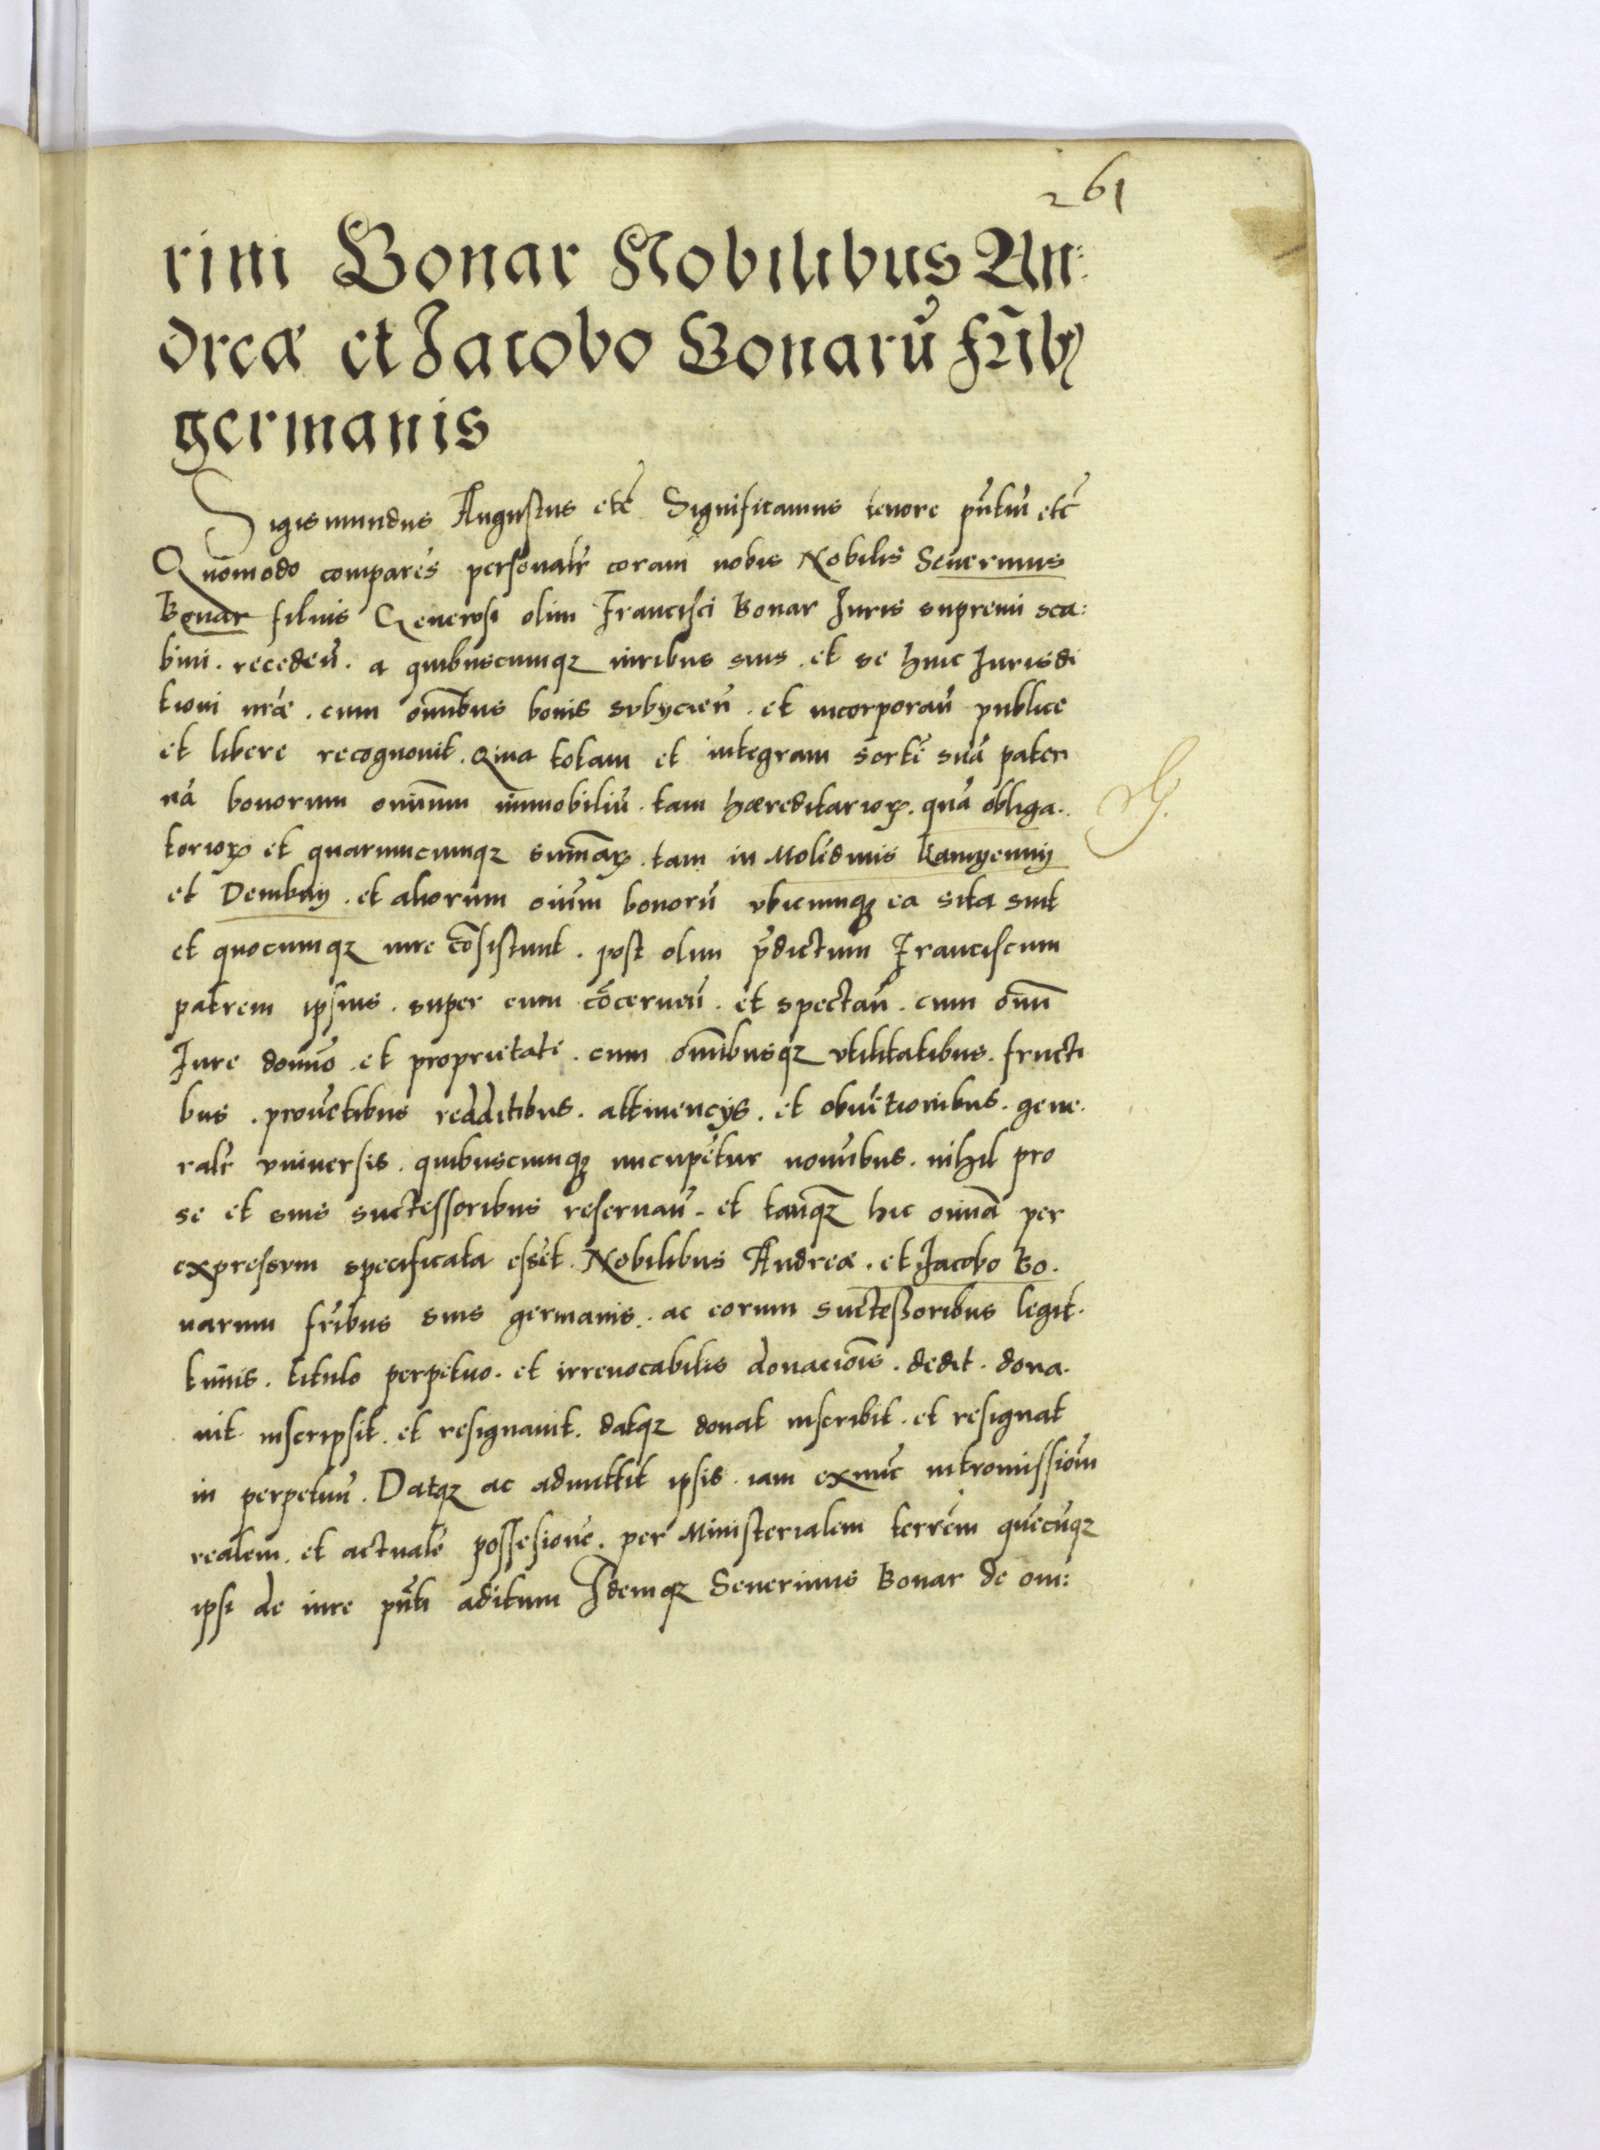 261
rini Bonar Nobilibus An:
dreæ et Jacobo Bonarū frīb9
germanis
Sigismundus Augustus etc̄ Significamus tenore pn̄tiū etc̄
Quomodo comparēs personalr̄ coram nobis Nobilis Seuerinus
Bonar filius Generosi olim Francisci Bonar Iuris supremi sca:
bini . recedeñ . a quibuscumqꝫ iuribus suis . et se huic Iurisdi
tioni nr̄æ . cum om̄ibus bonis subycieñ . et incorporañ publice
et libere recognouit . Quia totam et integram sortē suā pater
nā bonorum omnium immobiliū . tam hæreditarioꝝ . quā obliga.
torioꝝ et quarumcumqꝫ summaꝝ . tam in Molēdinis Kamyenny
et Dembny . et aliorum oīum bonorū vbicumqꝫ ea sita sint
et quocumqꝫ iure cōsistunt . post olim p̄dictum Franciscum
patrem ipsius . super eum cōcerneñ . et spectañ . cum om̄i
Iure domīo . et proprietate . cum om̄ibusqꝫ vtilitatibus . fructi
bus . prouētibus redditibus . attinencÿs . et obuētionibus . gene.
ralr̄ vniuersis . quibuscumqꝫ nūcupētur nomībus . nihil pro
se et suis successoribus reseruañ . et tanqꝫ hic omnia per
expressum specificata essēt . Nobilibus Andreæ . et Jacobo Bo.
narum fr̄ibus suis germanis . ac eorum successoribus legit.
timis . titulo perpetuo . et irreuocabilis donacioīs . dedit . dona.
uit inscripsit . et resignauit . datqꝫ donat inscribit . et resignat
in perpetuū . Datqꝫ ac admittit ipsis . iam exnūc intromissionē
realem . et actualē possesionē . per Ministerialem terrēm quēcūqꝫ
ipsi de iure pn̄ti aditum Idemqꝫ Seuerinus Bonar de om: